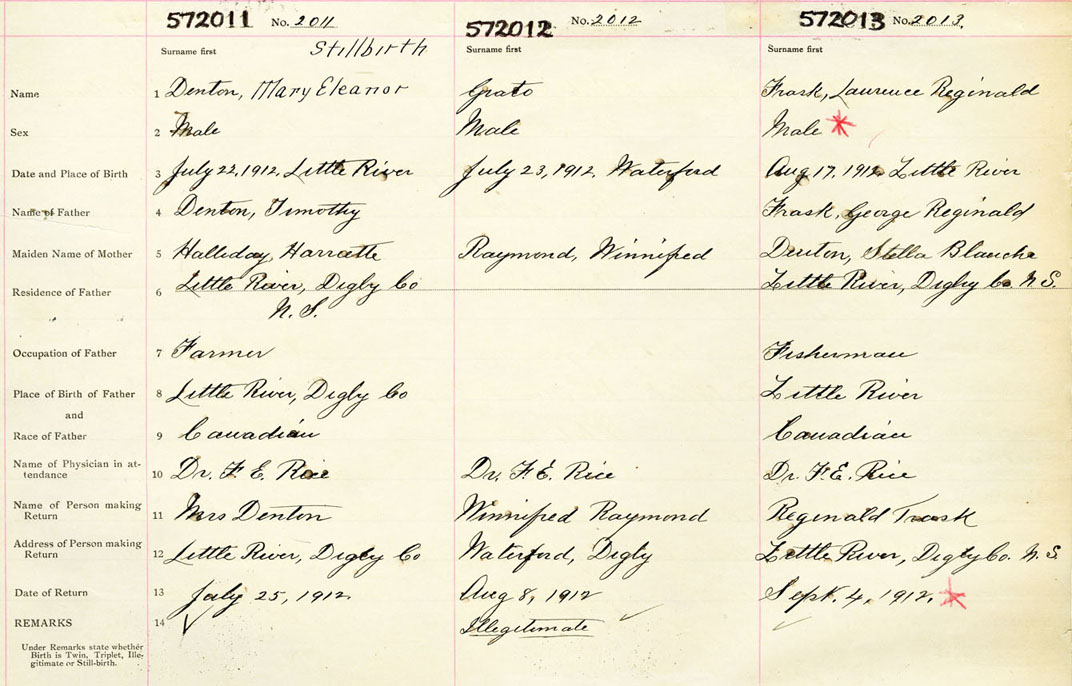 572011 No. 2011 572012 No. 2012 572013 No. 2013.
Surname first Stillbirth Surname first Surname first
Name 1 Denton, Mary Eleanor Grato Frask, Laurence Reginald
Sex 2 Male Male Male
Date and Place of Birth 3 July 22, 1912, Little River July 23, 1912, Waterford Aug 17, 1912, Little River
Name of Father 4 Denton, Timothy Frask, George Reginald
Maiden Name of Mother 5 Halliday, Harratte Raymond, Winnifred Denton, Stella Blanche
Residence of Father 6 Little River, Digby Co Little River, Digby Co. N. S.
N. S.
Occupation of Father 7 Farmer Fisherman
Place of Birth of Father 8 Little River, Digby Co Little River
and
Race of Father 9 Canadian Canadian
Name of Physician in at-
tendance 10 Dr. F. E. Rice Dr. F. E. Rice Dr. F. E. Rice
Name of Person making
Return 11 Mrs Denton Winnifred Raymond Reginald Trask
Address of Person making
Return 12 Little River, Digby Co Waterford, Digby Little River, Digby Co. N. S.
Date of Return 13 July 25, 1912. Aug 8, 1912 Sept. 4, 1912.
REMARKS 14 Illegitimate
Under Remarks state whether
Birth is Twin, Triplet, Ille-
gitimate or Still-birth.